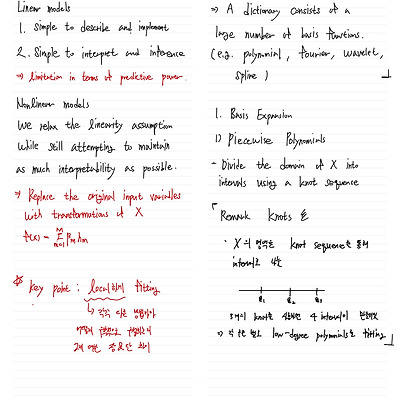 Linear models
1. Simple to describe and implement
2. Simple to interpret and inference
⇒ limitation in terms of predictive power.
Nonlinear models
We relax the linearity assumption
while still attempting to maintain
as much interpretability as possible.
⇒ Replace the original input variables
with transformations of X
f(X) = Σ βm hm
m=1
M
key point : local fitting
⇒ A dictionary consists of a
large number of basis functions.
(e.g. polynomial, fourier, wavelet,
spline)
1. Basis Expansion
1) Piecewise Polynomials
- Divide the domain of X into
intervals using a knot sequence
Remark Knots ξ
· X의 영역을 knot sequence를 통해
interval로
ξ1 ξ2 ξ3
3개의 knot를 4 interval이
⇒ low-degree polynomial로 fitting